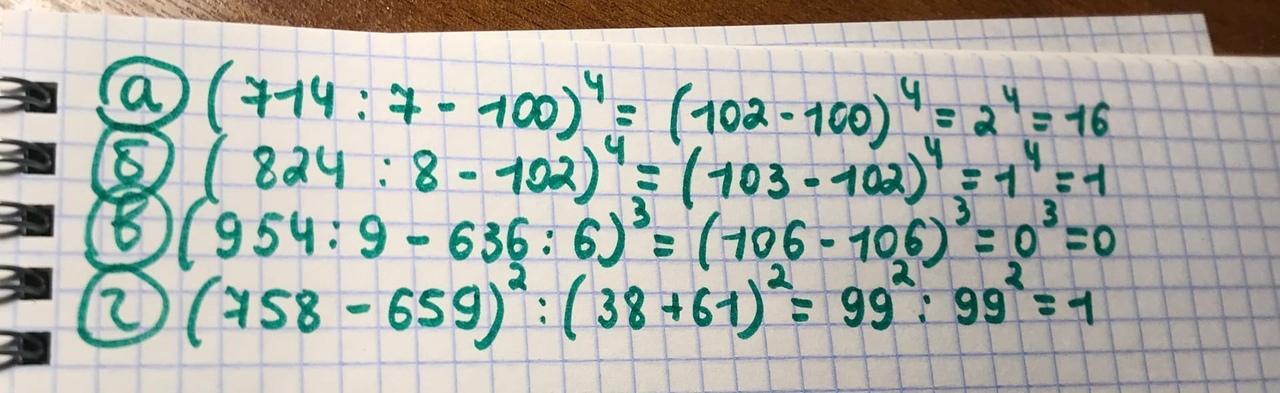 а (714 : 7 - 100)⁴ = (102 - 100)⁴ = 2⁴ = 16
б (824 : 8 - 102)⁴ = (103 - 102)⁴ = 1⁴ = 1
в (954 : 9 - 636 : 6)³ = (106 - 106)³ = 0³ = 0
г (758 - 659)² : (38 + 61)² = 99² : 99² = 1